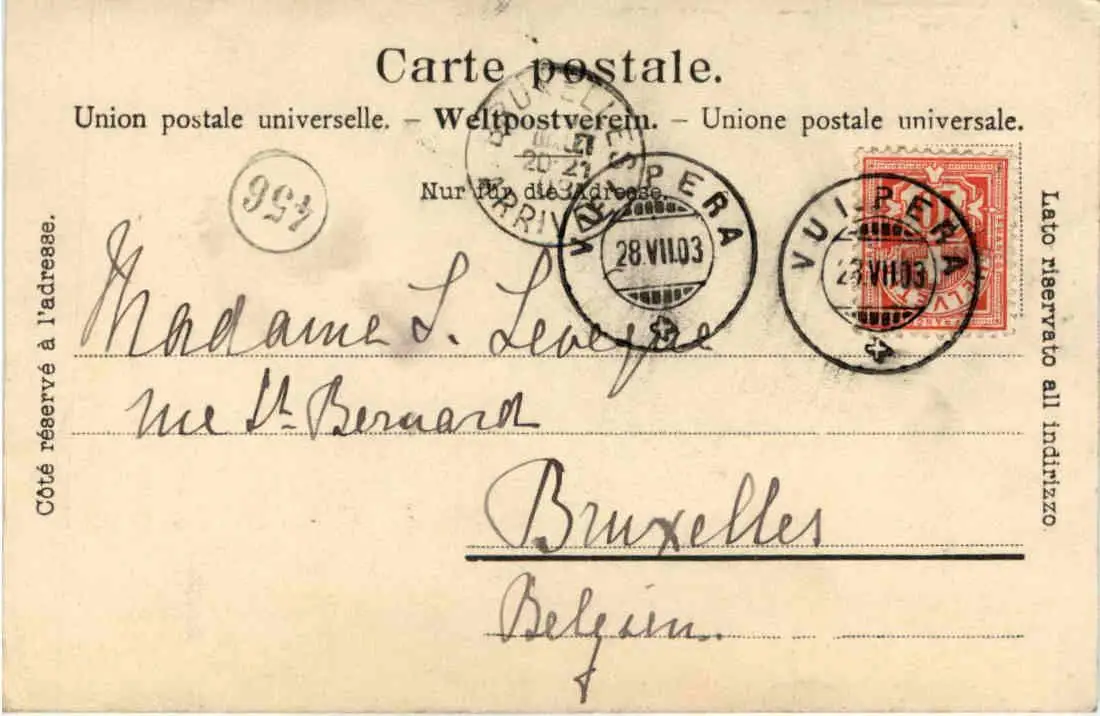 Carte postale.
Union postale universelle. – Weltpostverein. – Unione postale universale.
Nur für die Adresse.
BRUXELLES
20-21
ARRIV
456
VULPERA
28.VII.03
VULPERA
28.VII.03
10
HELVETIA
FRANCO
Côté réservé à l'adresse.
Lato riservato all indirizzo
Madame S. Leveque
rue St. Bernard
Bruxelles
Belgien.